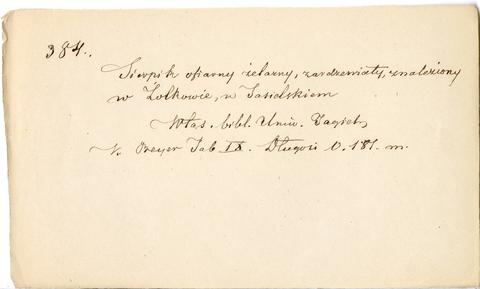 384.
Sierpik ofiarny żelazny, zardzewiały, znaleziony
w Żołkowie, w Jasielskiem
Włas. bibl. Uniw. Jagiel.
V. Beyer Tab IX. Długość 0.181. m.